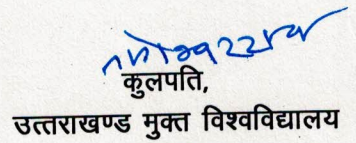 कुलपति,
उत्तराखण्ड मुक्त विश्वविद्यालय